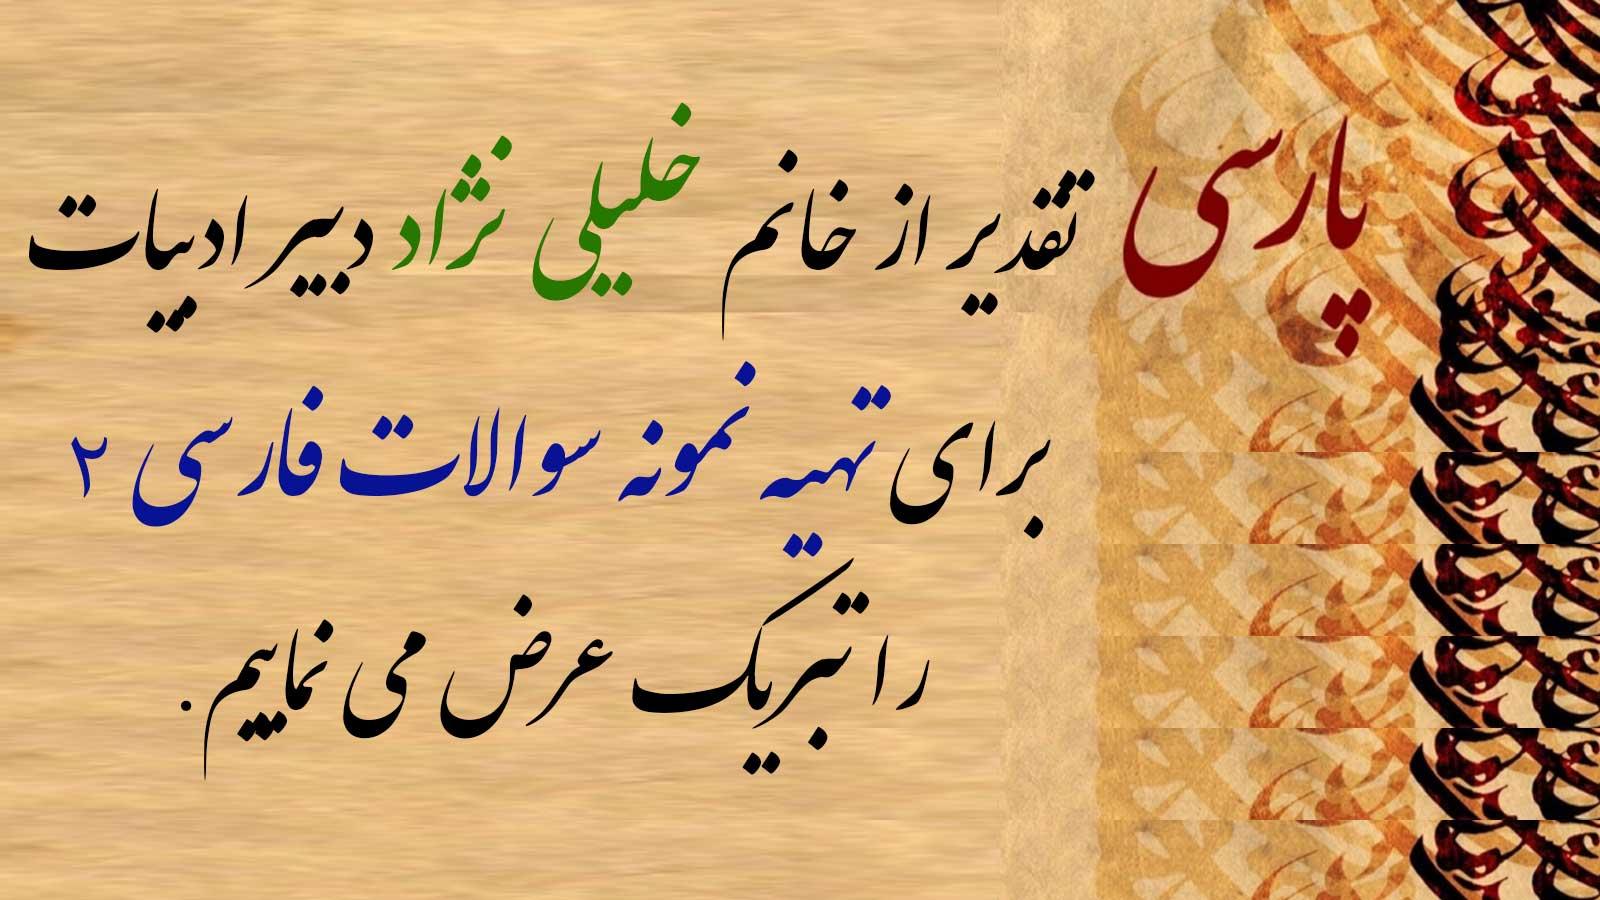 پارسی
تقدیر از خانم خلیلی نژاد دبیر ادبیات
برای تهیه نمونه سوالات فارسی ۲
را تبریک عرض می نماییم.